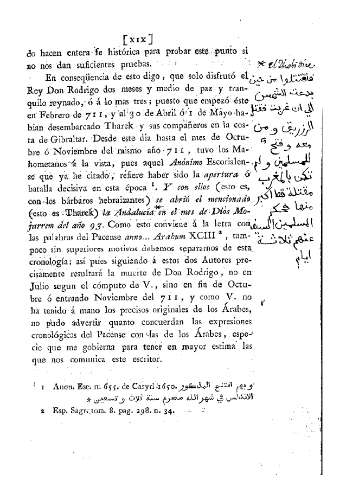 [XIX]
do hacen entera fe histórica para probar este punto si
no nos dan suficientes pruebas.
En conseqüencia de esto digo, que solo disfrutó el
Rey Don Rodrigo dos meses y medio de paz y tran-
quilo reynado, ó á lo mas tres; puesto que empezó éste
en Febrero de 711, y al 30 de Abril ó 1 de Mayo ha-
bian desembarcado Tharek y sus compañeros en la cos-
ta de Gibraltar. Desde este dia hasta el mes de Octu-
bre ó Noviembre del mismo año 711, tuvo los Ma-
hometanos á la vista, pues aquel Anónimo Escorialen-
se que ya he citado, refiere haber sido la apertura ó
batalla decisiva en esta época 1. Y con ellos (esto es,
con los bárbaros hebraizantes) se abrió el mencionado
(esto es Tharek) la Andalucía en el mes de Dios Mo-
jarrem del año 93. Como esto conviene á la letra con
las palabras del Pacense anno... Arabum XCIII 2, tam-
poco sin superiores motivos debemos separarnos de esta
cronología; así pues siguiendo á estos dos Autores pre-
cisamente resultará la muerte de Don Rodrigo, no en
Julio segun el cómputo de V., sino en fin de Octu-
bre ó entrando Noviembre del 711, y como V. no
ha tenido á mano los precisos originales de los Árabes,
no pudo advertir quanto concuerdan las expresiones
cronológicas del Pacense con las de los Árabes, espe-
cie que me gobierna para tener en mayor estima las
que nos comunica este escritor.
فاقتتلوا من حين
الى ان غربت
ومن
معه و
المسلمين ولم
تكن بالمغرب
مقتلة
منها
المسلمين السيف
عنهم ثلاثة
ايام
1 Anon. Esp. n. 655. de Casyri 1650. وبهم افتتح المذكور
الاندلس في شهر الله محرم سنة ثلاث وتسعين
2 Esp. Sagr. tom. 8. pag. 298. n. 34.